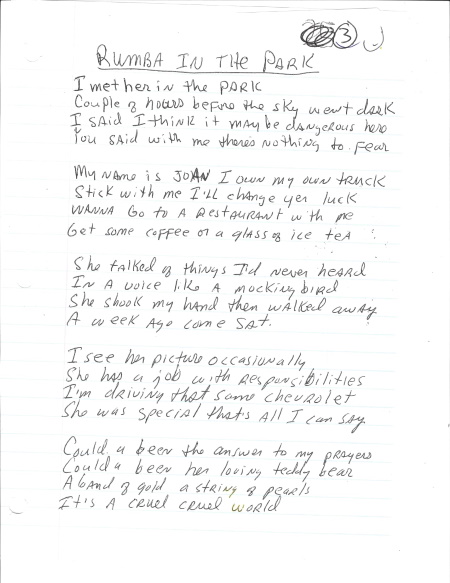 3
RUMBA IN THE PARK
I met her in the PARK
Couple of hours before the sky went dark
I SAID I think it may be dangerous here
You SAID with me theres nothing to fear
My NAME is JOAN I own my own truck
Stick with me I'LL change yer luck
WANNA Go to A RestAURANT with me
Get some coffee or a glass of ice teA
She talked of things I'd never heard
In A voice like A mockingbird
She shook my hand then walked away
A week Ago come SAt.
I see her picture occasionally
She has a job with Responsibilities
I'm driving that same chevrolet
She was special thats All I can say
Could a been the answer to my prayers
Could a been her loving teddy bear
A band of gold a string of pearls
It's A cruel cruel world